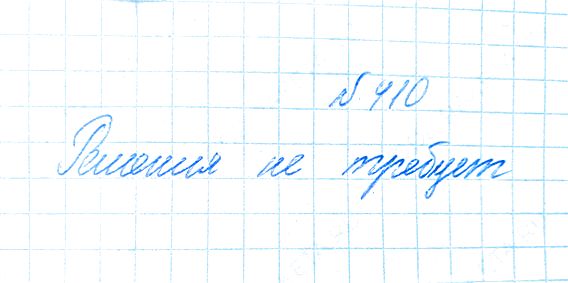 № 410
Решения не требует